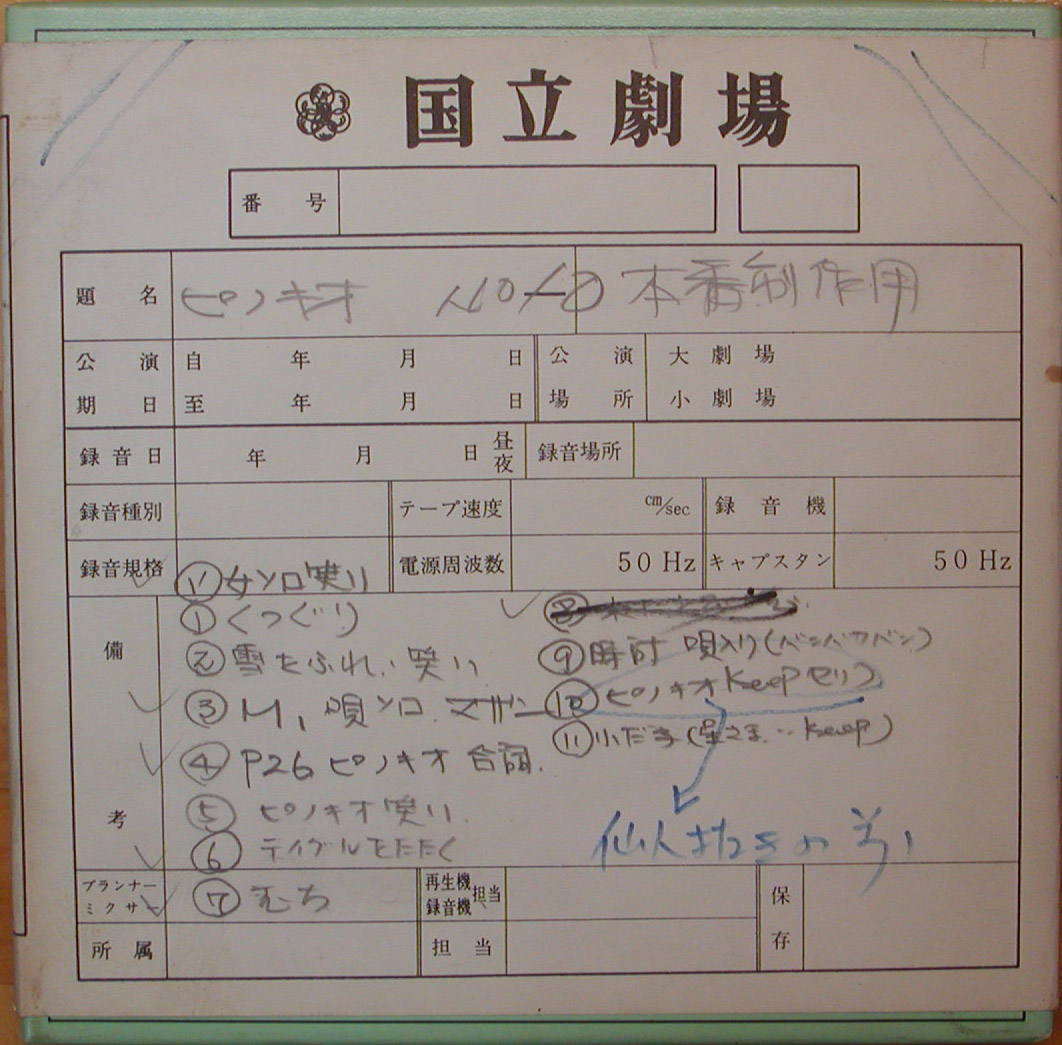 国立劇場
番号
題名 ピノキオ 本番制作用
公演期日 自 年 月 日 至 年 月 日 公演場所 大劇場 小劇場
録音日 年 月 日 昼 夜 録音場所
録音種別 テープ速度 cm/sec 録音機
録音規格 電源周波数 50 Hz キャプスタン 50 Hz
備考
笑い
① くつぐり
② 雪
③ M1 唄ソロ
④ P26 ピノキオ 台詞.
⑤ ピノキオ 笑い
⑥ テイブルをたたく
⑦ むち
⑨ 時計 唄入り
ピノキオ Keep セリフ
⑪ Keep)
仙人
プランナー ミクサー 再生機 録音機 担当 保存
所属 担当